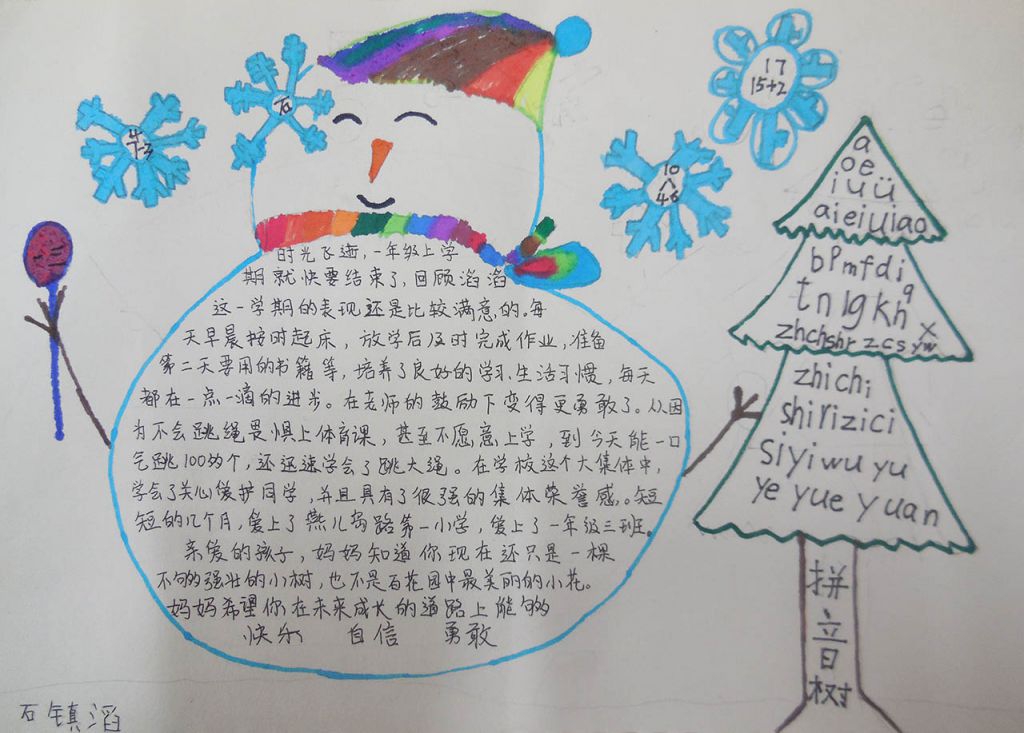 4
7-3
石
10
4 6
17
15+2
时光飞逝,一年级上学
期就快要结束了,回顾滔滔
这一学期的表现还是比较满意的。每
天早晨按时起床,放学后及时完成作业,准备
第二天要用的书籍等,培养了良好的学习生活习惯,每天
都在一点一滴的进步。在老师的鼓励下变得更勇敢了。从因
为不会跳绳畏惧上体育课,甚至不愿意上学,到今天能一口
气跳100多个,还迅速学会了跳大绳。在学校这个大集体中,
学会了关心爱护同学,并且具有了很强的集体荣誉感。短
短的几个月,爱上了燕儿岛路第一小学,爱上了一年级三班。
亲爱的孩子,妈妈知道你现在还只是一棵
不够强壮的小树,也不是百花园中最美丽的小花。
妈妈希望你在未来成长的道路上能够
快乐 自信 勇敢
a
o e
i u ü
ai ei ui ao
b p m f d j
t n l g k h q x
zh ch sh r z c s y w
zhi chi
shi ri zi ci
si yi wu yu
ye yue yuan
拼
音
树
石镇滔